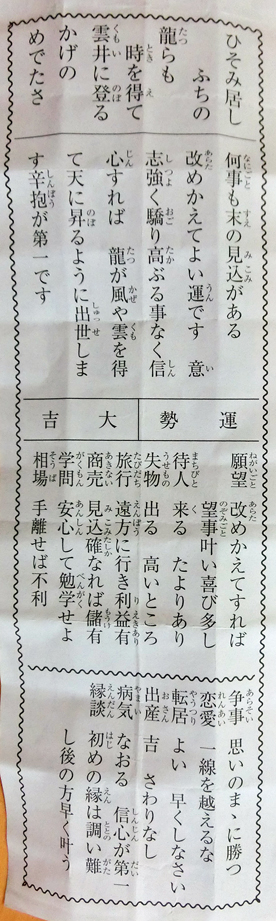 ひそみ居し
ふちの
龍らも
時を得て
雲井に登る
かげの
めでたさ
何事も末の見込がある
改めかえてよい運です　意
志強く驕り高ぶる事なく信
心すれば　龍が風や雲を得
て天に昇るように出世しま
す辛抱が第一です
運勢　大吉
願望　改めかえてすれば
望事叶い喜び多し
待人　来る　たよりあり
失物　出る　高いところ
旅行　遠方に行き利益有
商売　見込確なれば儲有
学問　安心して勉学せよ
相場　手離せば不利
争事　思いのまゝに勝つ
恋愛　一線を越えるな
転居　よい　早くしなさい
出産　吉　さわりなし
病気　なおる　信心が第一
縁談　初めの縁は調い難
し後の方早く叶う